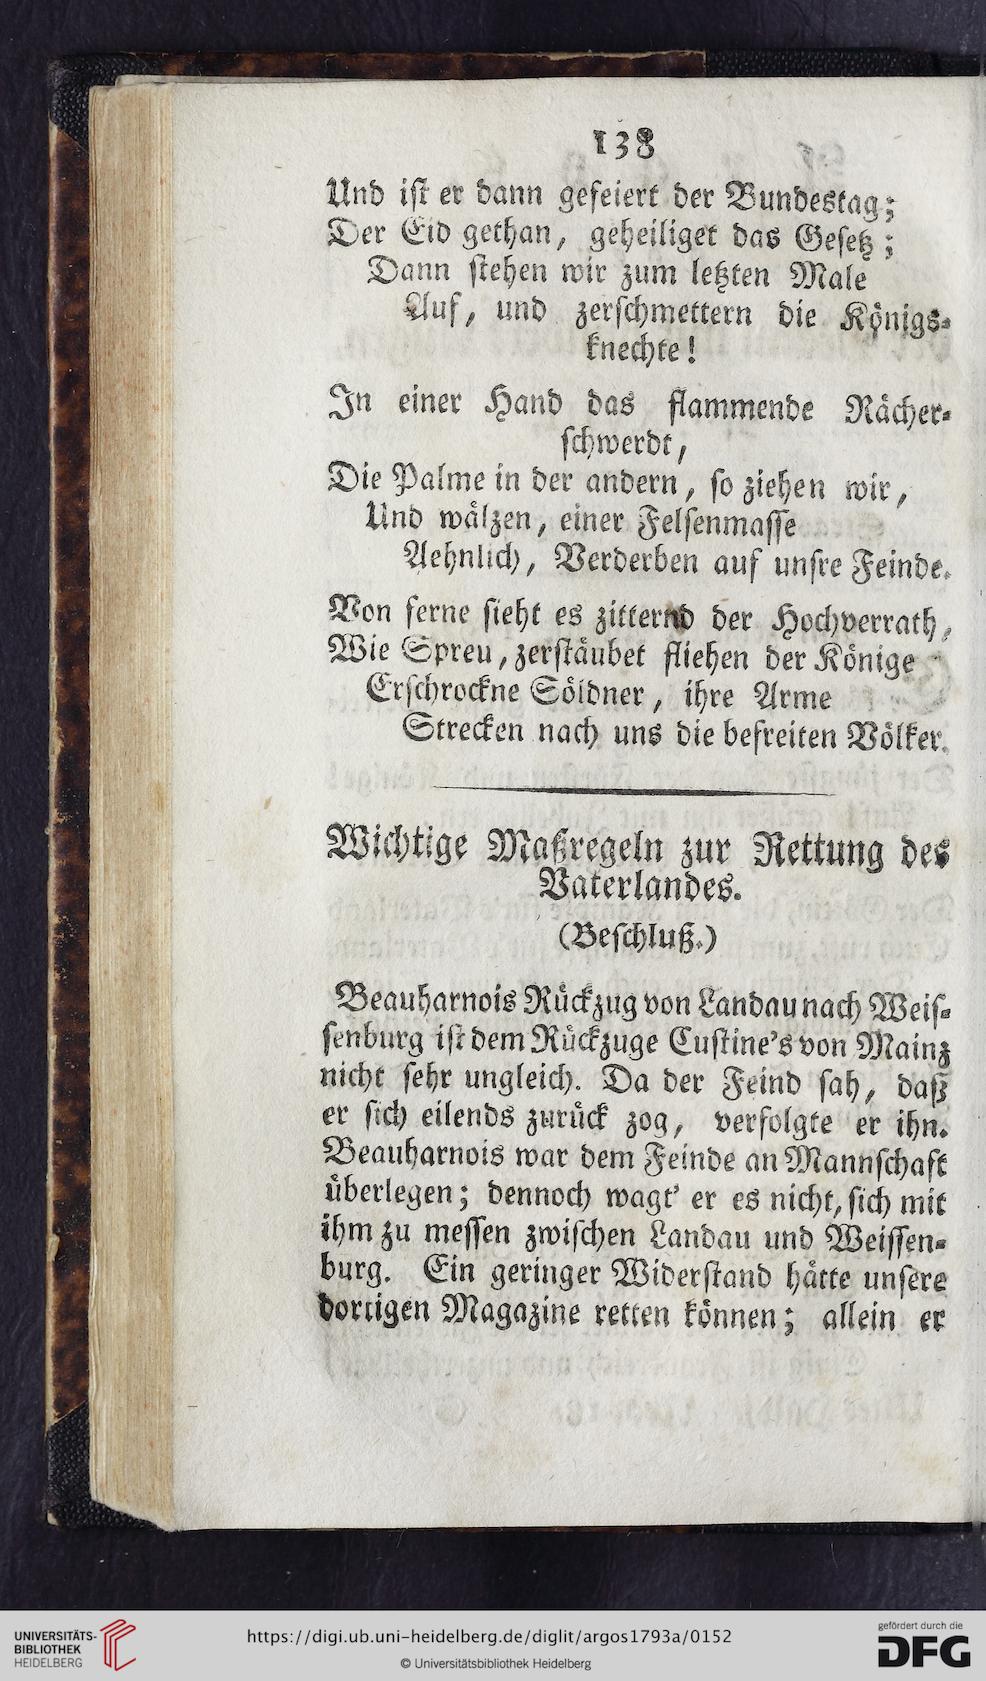 138
Und ist er dann gefeiert der Bundestag;
Der Eid gethan, geheiliget das Gesetz;
Dann stehen wir zum letzten Male
Auf, und zerschmettern die Königs-
knechte!
In einer Hand das flammende Rächer-
schwerdt,
Die Palme in der andern, so ziehen wir,
Und wälzen, einer Felsenmasse
Aehnlich, Verderben auf unsre Feinde.
Von ferne sieht es zitternd der Hochverrath,
Wie Spreu, zerstäubet fliehen der Könige
Erschrockne Söldner, ihre Arme
Strecken nach uns die befreiten Völker.
Wichtige Maßregeln zur Rettung des
Vaterlandes.
(Beschluß.)
Beauharnois Rückzug von Landau nach Weis-
senburg ist dem Rückzuge Custine's von Mainz
nicht sehr ungleich. Da der Feind sah, daß
er sich eilends zurück zog, verfolgte er ihn.
Beauharnois war dem Feinde an Mannschaft
überlegen; dennoch wagt' er es nicht, sich mit
ihm zu messen zwischen Landau und Weissen-
burg. Ein geringer Widerstand hätte unsere
dortigen Magazine retten können; allein er
UNIVERSITÄTS-
BIBLIOTHEK
HEIDELBERG
https://digi.ub.uni-heidelberg.de/diglit/argos1793a/0152
© Universitätsbibliothek Heidelberg
gefördert durch die
DFG